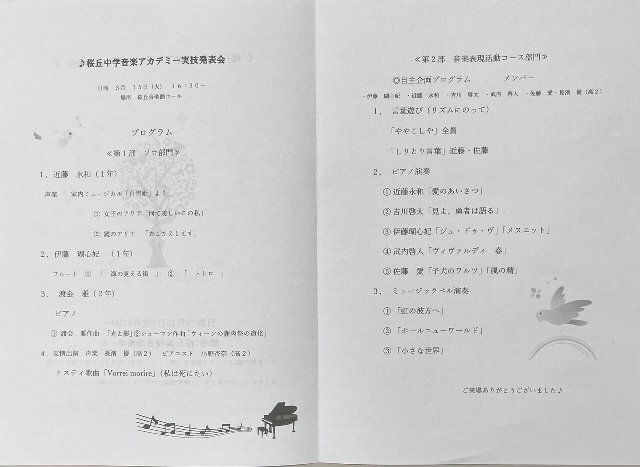 ♪桜丘中学音楽アカデミー実技発表会
日時 3月 15日（火） 16:30～
場所 桜丘音楽館ホール
プログラム
≪第1部 ソロ部門≫
1．近藤 永和（1年）
声楽 家内ミュージカル「白雪姫」より
① 女王のアリア「何て美しいこの私」
② 鏡のアリア 「おこたえします」
2．伊藤 瑚心妃 （1年）
フルート ① 「 海の見える街 」 ② 「 トトロ 」
3． 渡会 雅（2年）
ピアノ
① 渡会 雅作曲 「光と影」②シューマン作曲「ウィーンの謝肉祭の道化」
4．友情出演 声楽 長濱 優（高2） ピアニスト 小野杏奈（高2）
トスティ歌曲「Vorrei morire」（私は死にたい）
≪第2部 音楽表現活動コース部門≫
◎自主企画プログラム メンバー
・伊藤 瑚心妃 ・近藤 永和 ・吉川 啓太 ・武内 啓人 ・佐藤 愛・長濱 優（高2）
1． 言葉遊び（リズムにのって）
「ややこしや」全員
「しりとり言葉」近藤・佐藤
2． ピアノ演奏
① 近藤永和「愛のあいさつ」
② 吉川啓太「見よ、勇者は帰る」
③ 伊藤瑚心妃「ジュ・トゥ・ヴ」「メヌエット」
④ 武内啓人「ヴィヴァルディ 春」
⑤ 佐藤 愛「子犬のワルツ」「風の精」
3． ミュージックベル演奏
① 「虹の彼方へ」
② 「ホールニューワールド」
③ 「小さな世界」
ご来場ありがとうございました♪